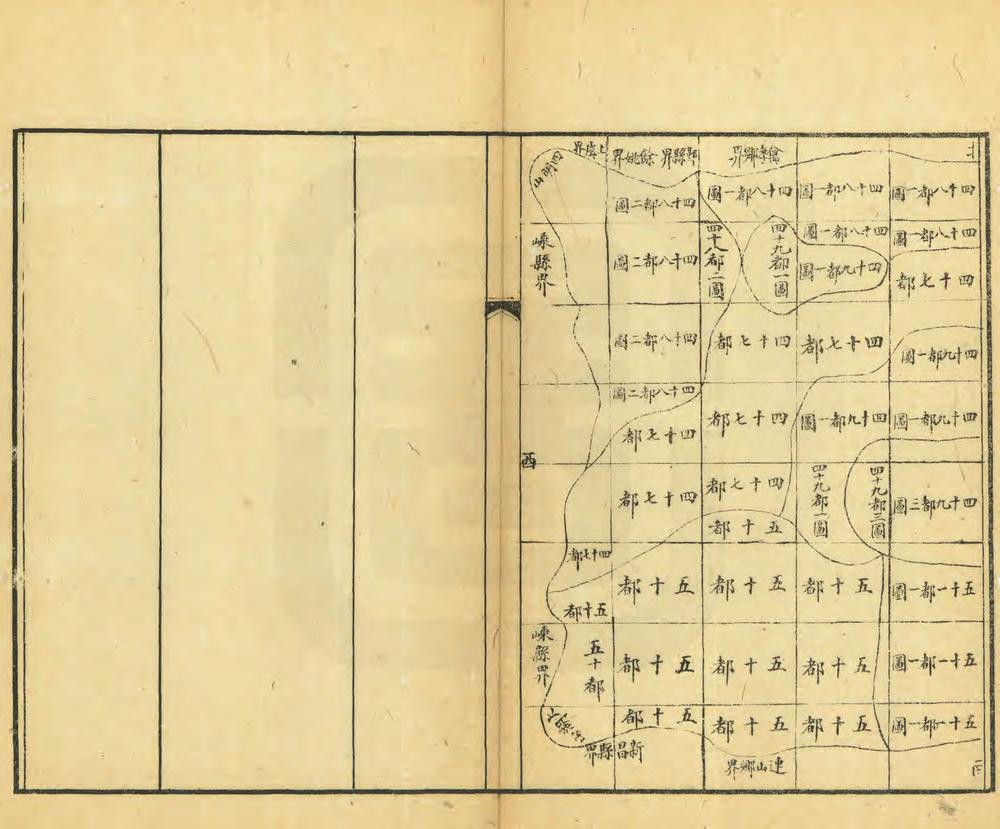 禽孝鄉界
鄞縣界
餘姚界
上虞界
四明山
四十八都一圖
四十八都一圖
四十八都一圖
四十八都二圖
四十八都一圖
四十八都一圖
四十九都一圖
四十八都二圖
四十八都二圖
嵊縣界
四十七都
四十九都一圖
四十九都一圖
四十七都
四十七都
四十八都二圖
四十九都一圖
四十九都一圖
四十七都
四十八都二圖
四十七都
西
四十九都三圖
四十九都三圖
四十九都一圖
四十七都
五十都
四十七都
四十七都
五十一都一圖
五十都
五十都
五十都
五十都
五十一都一圖
五十都
五十都
五十都
五十都
嵊縣界
五十一都一圖
五十都
五十都
五十都
新昌縣界
連山鄉界